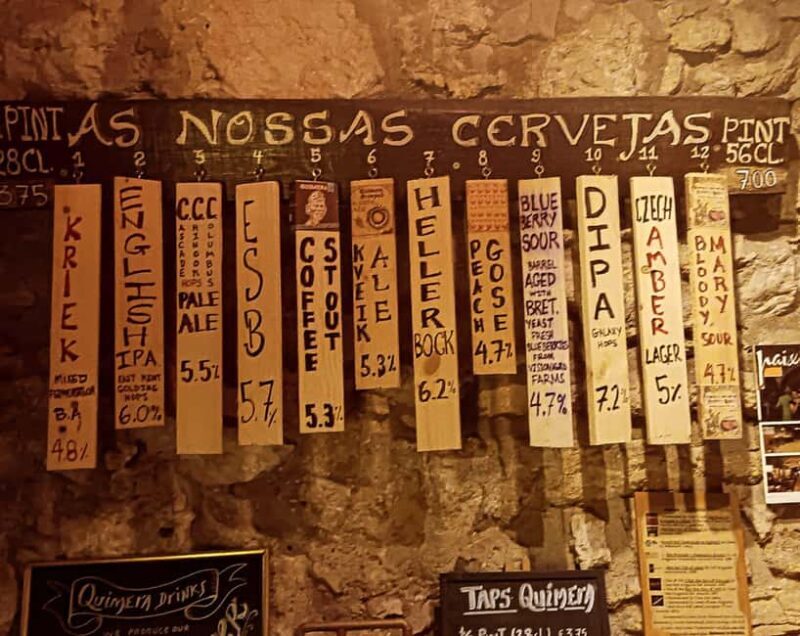 PINT AS NOSSAS CERVEJAS PINT
28CL. 56CL.
375 700
1
KRIEK
MIXED
FERMENTATION
B.A
4.8%
2
ENGLISH
IPA
EAST KENT
GOLDING
HOPS
6.0%
3
C.C.C
CASCADE
CHINOOK
COLUMBUS
HOPS
PALE
ALE
5.5%
4
ESB
5.7%
5
COFFEE
STOUT
5.3%
6
KVEIK
ALE
5.3%
7
HELLER
BOCK
6.2%
8
PEACH
GOSE
4.7%
9
BLUE
BERRY
SOUR
BARREL
AGED
WITH
BRET.
YEAST
FRESH
BLUEBERRIES
FROM
FARMS
4.7%
10
DIPA
GALAXY
HOPS
7.2%
11
CZECH
AMBER
LAGER
5%
12
BLOODY
MARY
SOUR
4.7%
QUIMERA DRINKS
WE PRODUCE OUR
TAPS QUIMERA
½ PINT (28CL) €3.75